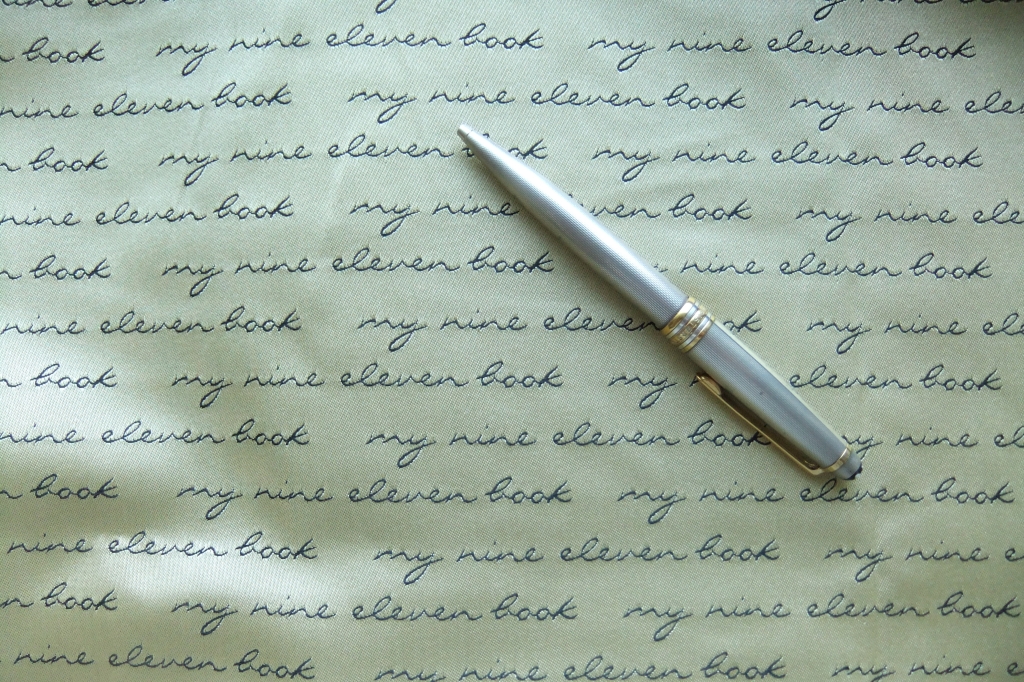 book my nine eleven book my nine eleven book
nine eleven book my nine eleven book my nine
book my nine eleven my nine eleven book
nine eleven book my nine book my nine
book my nine eleven book nine eleven book
nine eleven book my nine eleven my nine
book my nine eleven book my eleven book
nine eleven book my nine eleven book my nine
book my nine eleven book my nine eleven book
nine eleven book my nine eleven book my nine
book my nine eleven book my nine eleven book
nine eleven book my nine eleven book my nine